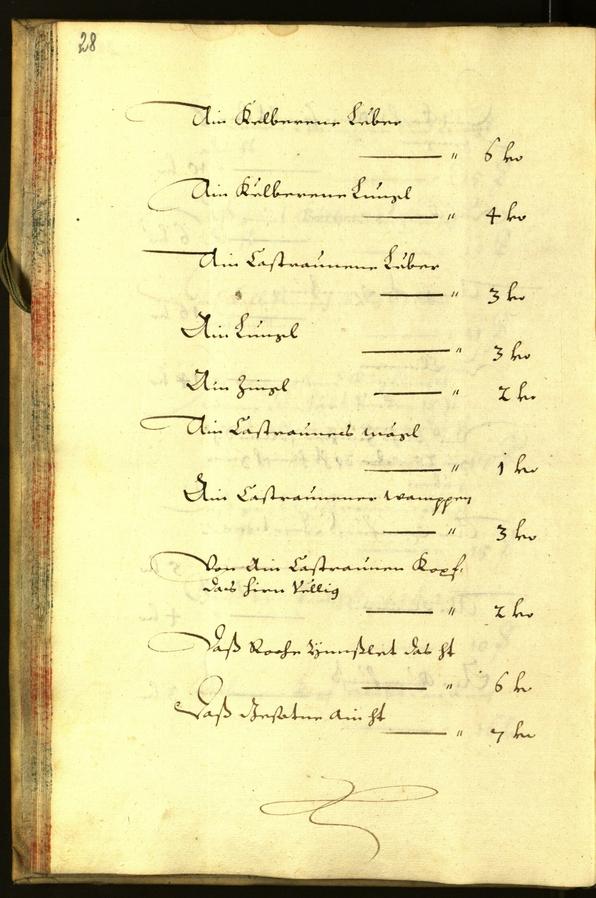 28
Ain Kelberene Lüber
— " 6 kr
Ain Kelberene Lungl
— " 4 kr
Ain Castraunene Lüber
— " 3 kr
Ain Lungl
— " 3 kr
Ain Züngl
— " 2 kr
Ain Castrauners mägl
— " 1 kr
Ain Castraunener wamppen
— " 3 kr
Von Ain Castraunen Kopf
das hirn Völlig
— " 2 kr
Daß Roche Ynnßlet das ℔
— " 6 kr
Daß ain ℔
— " 7 kr